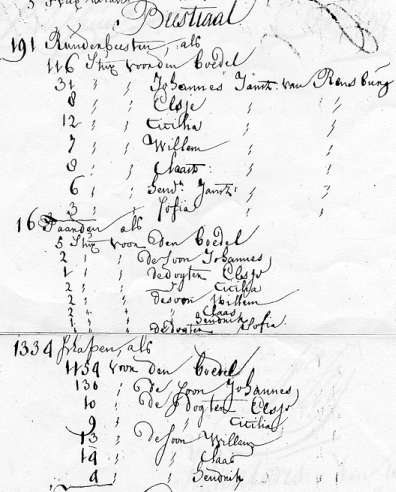 Beestiaal
191 Runderbeesten, als
116 Stux voor den Boedel
31 " " Johannes Jansz: van Rensburg
8 " " Elsje " "
12 " " Cicilia " "
7 " " Willem " "
8 " " Claas " "
6 " " Hendk: Jansz: " "
3 " " Sofia " "
16 Paarden, als
5 Stux voor Den Boedel
2 " " De Soon Johannes,
1 " " De Dogter Elsje
2 " " " Cicilia
2 " " De Soon Willem
2 " " " Claas
1 " " " Hendrik
1 " " De Dogter Sofia.
1334 Schapen, als
1154 voor den Boedel
130 " De Soon Johannes,
10 " De Dogter Elsje
9 " " Cicilia
13 " De Soon Willem
14 " " Claas
4 " " Hendrik